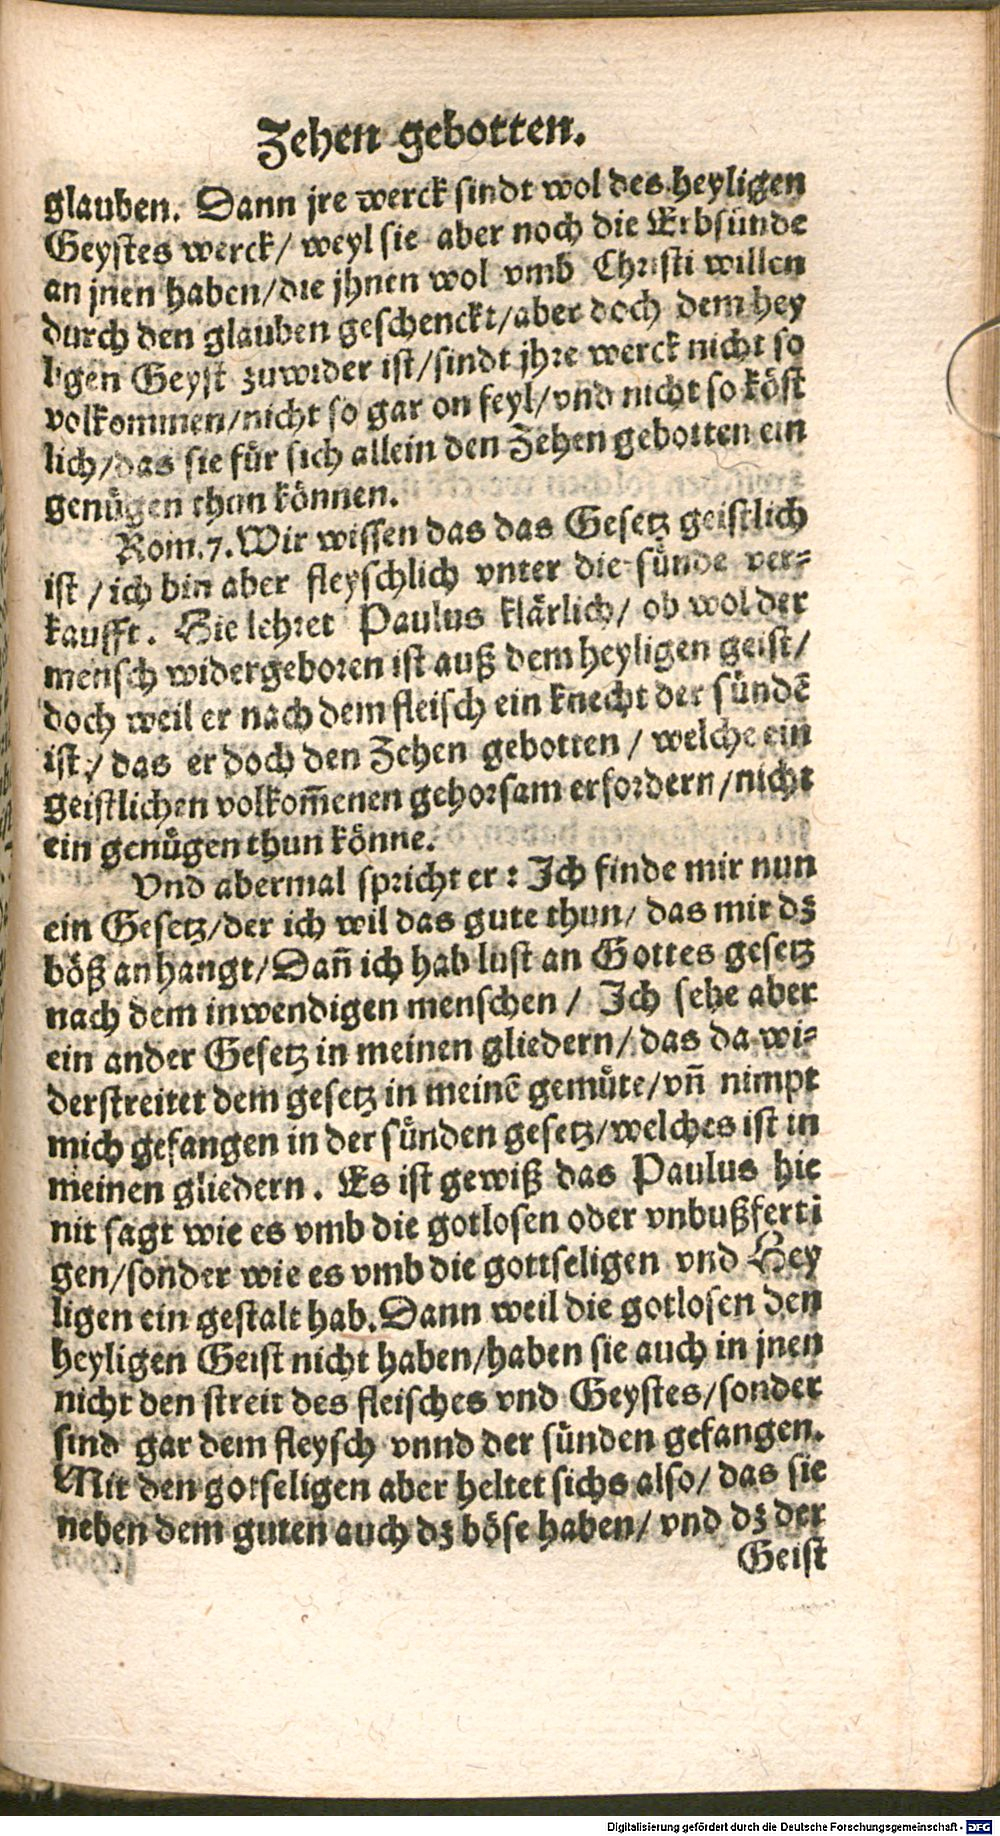 Zehen gebotten.
glauben. Dann jre werck sindt wol des heyligen
Geystes werck/ weyl sie aber noch die Erbsünde
an jnen haben/die jhnen wol vmb Christi willen
durch den glauben geschenckt/aber doch dem hey
ligen Geyst zuwider ist/sindt jhre werck nicht so
volkommen/nicht so gar on feyl/vnd nicht so köst
lich/das sie für sich allein den Zehen gebotten ein
genügen thun können.
Rom.7.Wir wissen das das Gesetz geistlich
ist / ich bin aber fleyschlich vnter die sünde ver-
kaufft. Hie lehret Paulus klärlich/ ob wol der
mensch widergeboren ist auß dem heyligen geist/
doch weil er nach dem fleisch ein knecht der sündē
ist/ das er doch den Zehen gebotten / welche ein
geistlichen volkom̄enen gehorsam erfordern/nicht
ein genügen thun könne.
Vnd abermal spricht er: Ich finde mir nun
ein Gesetz/der ich wil das gute thun/ das mir dz
böß anhangt/Dan̄ ich hab lust an Gottes gesetz
nach dem inwendigen menschen / Ich sehe aber
ein ander Gesetz in meinen gliedern/ das da wi-
derstreitet dem gesetz in meinē gemüte/vn̄ nimpt
mich gefangen in der sünden gesetz/welches ist in
meinen gliedern. Es ist gewiß das Paulus hie
nit sagt wie es vmb die gotlosen oder vnbußferti
gen/sonder wie es vmb die gottseligen vnd Hey
ligen ein gestalt hab. Dann weil die gotlosen den
heyligen Geist nicht haben/haben sie auch in jnen
nicht den streit des fleisches vnd Geystes/sonder
sind gar dem fleysch vnnd der sünden gefangen.
Mit den gotseligen aber heltet sichs also/ das sie
neben dem guten auch dz böse haben/ vnd dz der
Geist
Digitalisierung gefördert durch die Deutsche Forschungsgemeinschaft - DFG